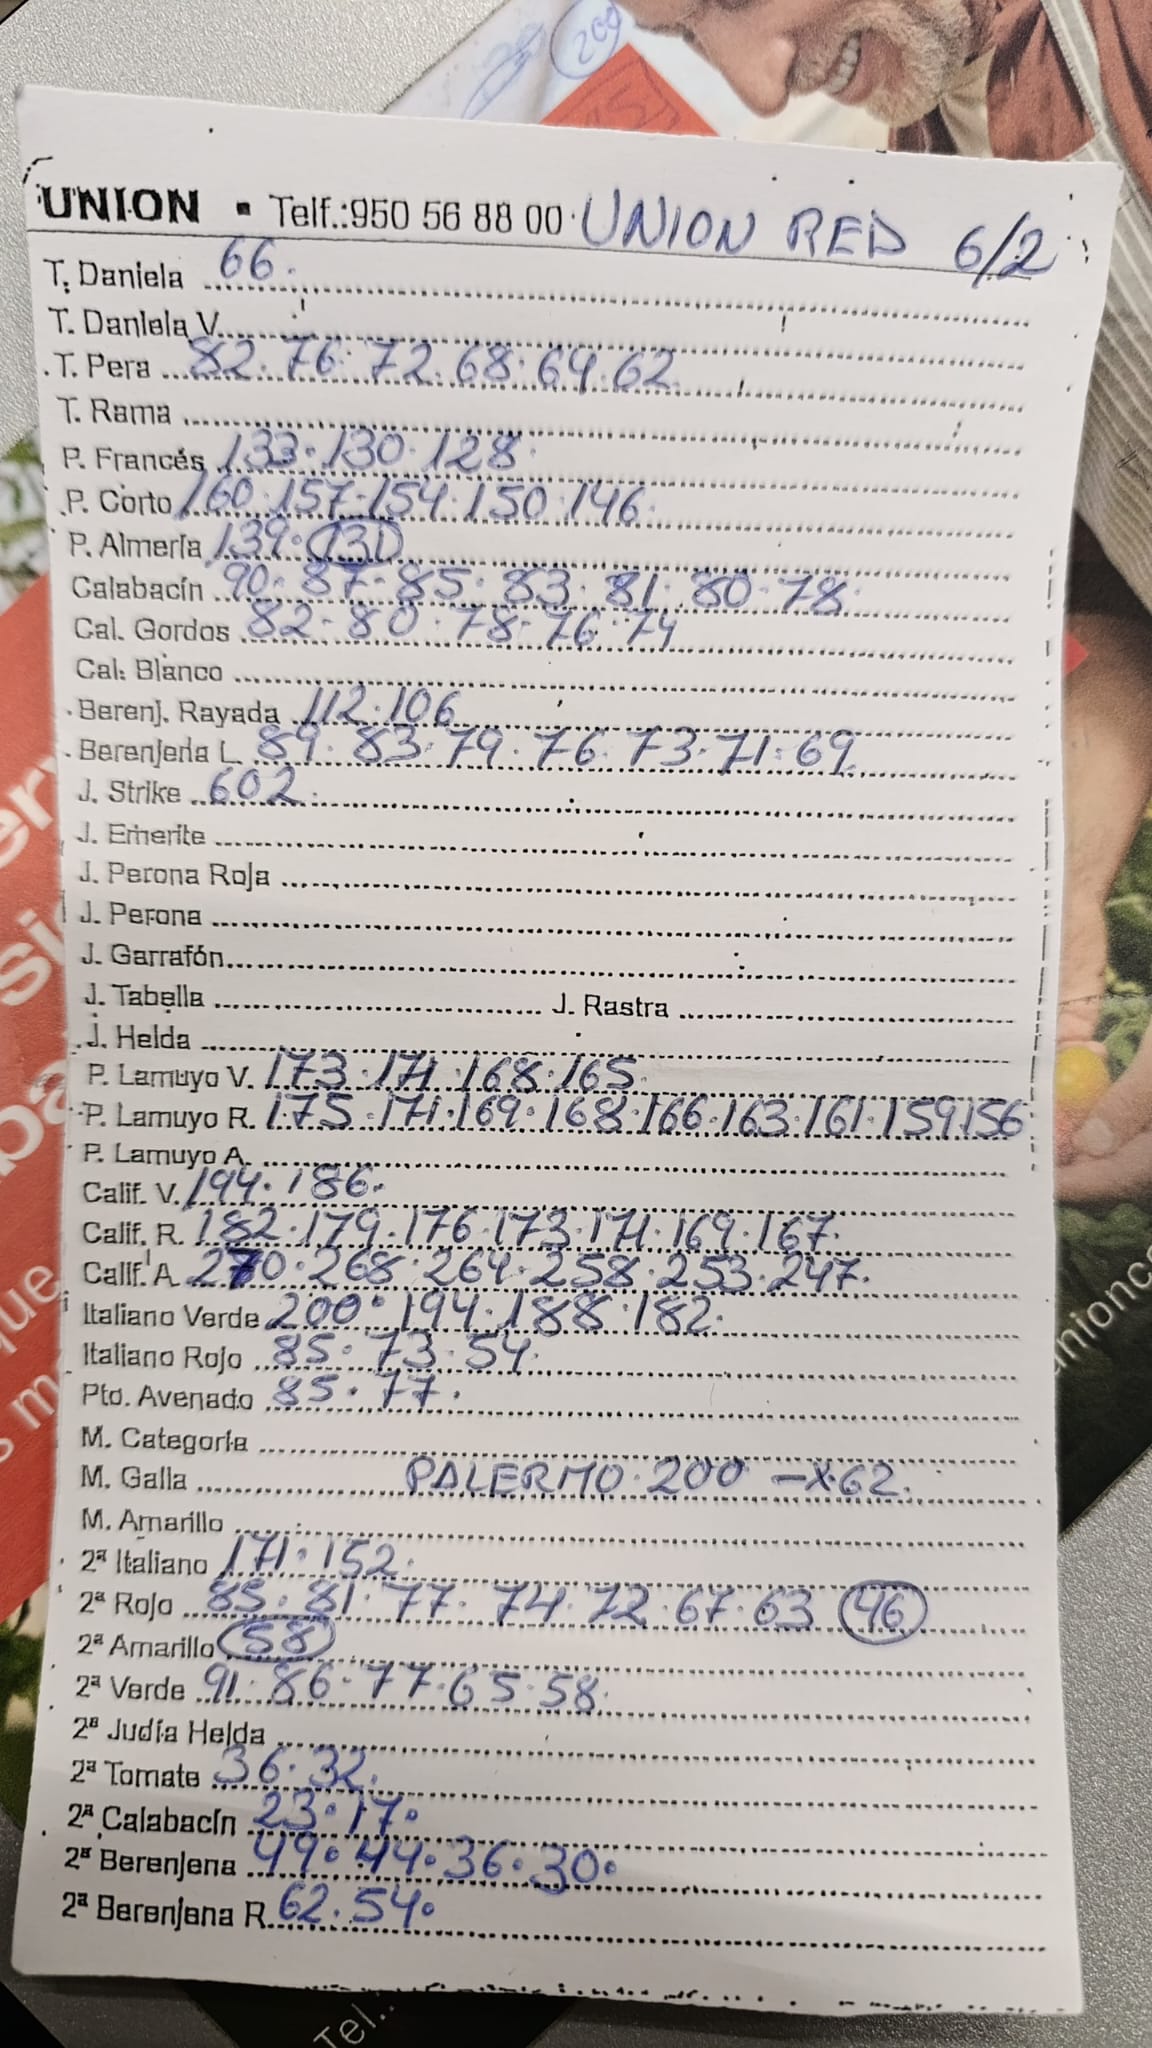 209
UNION · Telf.:950 56 88 00 · UNION RED 6/2
T. Daniela 66.
T. Daniela V.
T. Pera 82. 76. 72. 68. 64. 62
T. Rama
P. Francés 133. 130. 128.
P. Corto 160. 157. 154. 150. 146.
P. Almería 139. 131
Calabacín 90. 87. 85. 83. 81. 80. 78.
Cal. Gordos 82. 80. 78. 76. 74
Cal. Blanco
Berenj. Rayada 112. 106
Berenjena L. 89. 83. 79. 76. 73. 71. 69
J. Strike 602.
J. Emerite
J. Perona Roja
J. Perona
J. Garrafón
J. Tabella J. Rastra
J. Helda
P. Lamuyo V. 173. 171. 168. 165.
P. Lamuyo R. 175. 171. 169. 168. 166. 163. 161. 159. 156
P. Lamuyo A.
Calif. V. 194. 186.
Calif. R. 182. 179. 176. 173. 171. 169. 167.
Calif. A. 270. 268. 264. 258. 253. 247.
Italiano Verde 200. 194. 188. 182.
Italiano Rojo 85. 73. 54.
Pto. Avenado 85. 77.
M. Categoría
M. Galia PALERMO. 200 - X. 62.
M. Amarillo
2ª Italiano 171. 152.
2ª Rojo 85. 81. 77. 74. 72. 67. 63 46
2ª Amarillo 58
2ª Verde 91. 86. 77. 65. 58.
2ª Judía Helda
2ª Tomate 36. 32.
2ª Calabacín 23. 17.
2ª Berenjena 49. 44. 36. 30.
2ª Berenjena R. 62. 54.
Tel.: